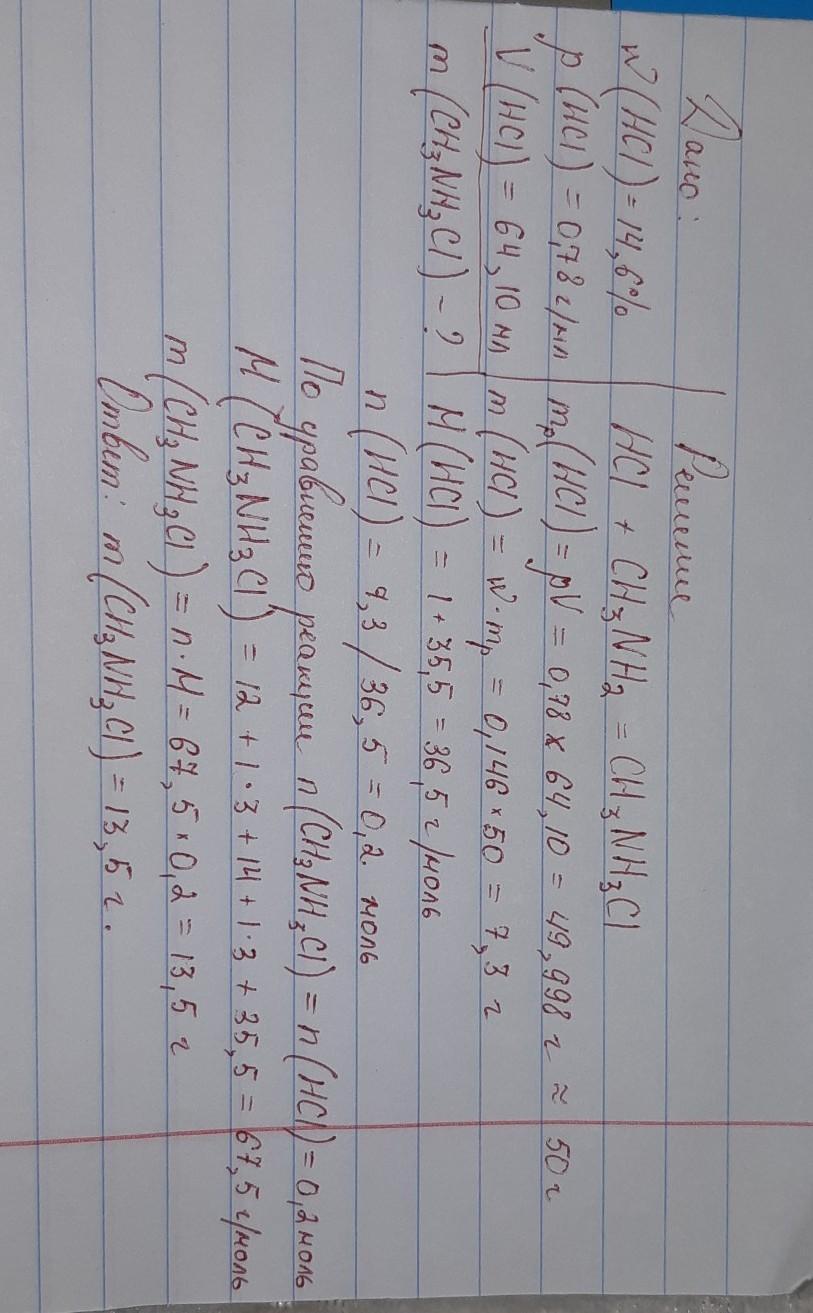 Дано:
w(HCl)=14,6%
ρ(HCl)=0,78 г/мл
V(HCl)=64,10 мл
m(CH₃NH₃Cl)-?
Решение
HCl + CH₃NH₂ = CH₃NH₃Cl
mₚ(HCl)=ρV=0,78×64,10=49,998 г ≈ 50 г
m(HCl)=w·mₚ=0,146×50=7,3 г
M(HCl)=1+35,5=36,5 г/моль
n(HCl)=7,3/36,5=0,2 моль
По уравнению реакции n(CH₃NH₃Cl)=n(HCl)=0,2 моль
M(CH₃NH₃Cl)=12+1·3+14+1·3+35,5=67,5 г/моль
m(CH₃NH₃Cl)=n·M=67,5×0,2=13,5 г
Ответ: m(CH₃NH₃Cl)=13,5 г.